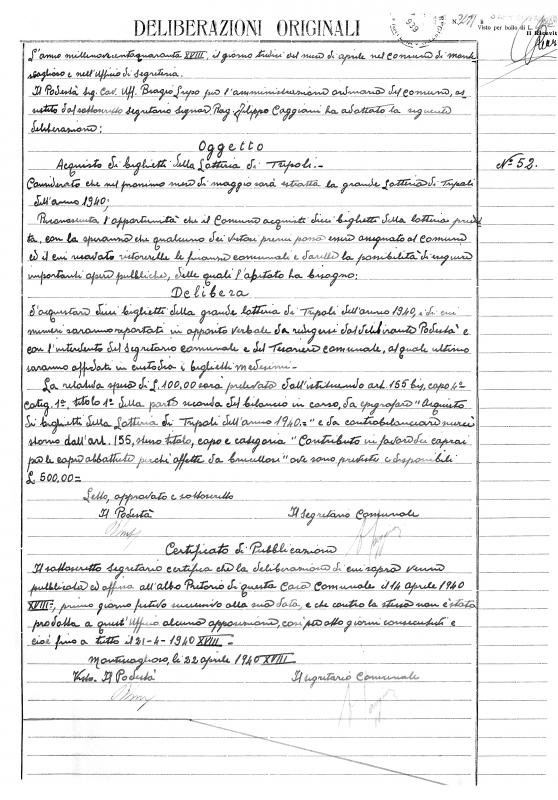 DELIBERAZIONI ORIGINALI
939
N.
Visto per bollo di L.
Il Ricevit
L'anno millenovecentoquaranta XVIII, il giorno tredici del mese di aprile nel comune di Monte
scaglioso e nell'Ufficio di segreteria.
Il Podestà sig. Cav. Uff. Biagio Lupo per l'amministrazione ordinaria del comune, as
sistito dal sottoscritto segretario signor Rag. Filippo Caggiani ha adottato la seguente
deliberazione:
Oggetto
Acquisto di biglietti della Lotteria di Tripoli.-
N° 52.
Considerato che nel prossimo mese di maggio sarà estratta la grande Lotteria di Tripoli
dell'anno 1940;
Riconosciuta l'opportunità che il Comune acquisti dieci biglietti della lotteria prede
ta, con la speranza che qualcuno dei vistosi premi possa essere assegnato al comune
ed il cui ricavato ristorerebbe le finanze comunali e darebbe la possibilità di eseguire
importanti opere pubbliche, delle quali l'abitato ha bisogno;
Delibera
d'acquistare dieci biglietti della grande lotteria di Tripoli dell'anno 1940, i di cui
numeri saranno riportati in apposito verbale da redigersi dal deliberante Podestà e
con l'intervento del segretario comunale e del Tesoriere comunale, al quale ultimo
saranno affidati in custodia i biglietti medesimi.-
La relativa spesa di £. 100.00 sarà prelevata dall'istituendo art. 155 bis, capo 4°
categ. 1ª, titolo 1° della parte seconda del bilancio in corso, da epigrafare "Acquisto
di biglietti della Lotteria di Tripoli dell'anno 1940.=" e da controbilanciare mercè
storno dall'art. 155, stesso titolo, capo e categoria "Contributo in favore dei caprai
per le capre abbattute perchè affette da brucellosi" ove sono previste e disponibili
£ 500,00=
Letto, approvato e sottoscritto
Il Podestà Il Segretario Comunale
Certificato di Pubblicazione
Il sottoscritto segretario certifica che la deliberazione di cui sopra venne
pubblicata ed affissa all'albo Pretorio di questa Casa Comunale il 14 aprile 1940
XVIII°, primo giorno festivo successivo alla sua data, e che contro la stessa non è stata
prodotta a quest'Ufficio alcuna opposizione, così per otto giorni consecutivi e
cioè fino a tutto il 21-4-1940 XVIII.-
Montescaglioso, li 22 aprile 1940 XVIII
Visto. Il Podestà Il segretario Comunale